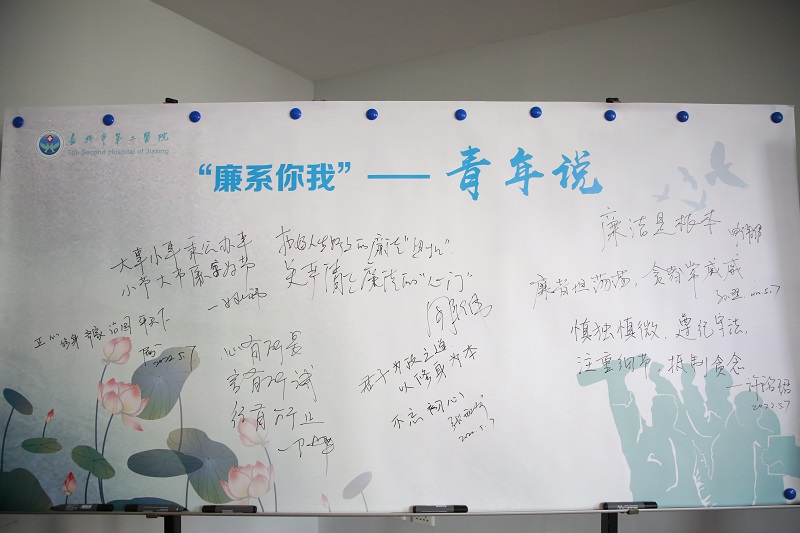 嘉兴市第二医院
The Second Hospital of Jiaxing
“廉系你我”——青年说
大事小事秉公办事
小节大节廉字好节
扣好人生的廉洁“扣儿”
关牢清正廉洁的“心门”
廉洁是根本
廉者坦荡荡，贪者常戚戚
2022.5.7
正心 修身 齐家 治国 平天下
2022.5.7
心有所畏
言有所诫
行有所止
君子为政之道
以修身为本
不忘初心
2022.5.7
慎独慎微，遵纪守法，
注重细节，抵制贪念
2022.5.7